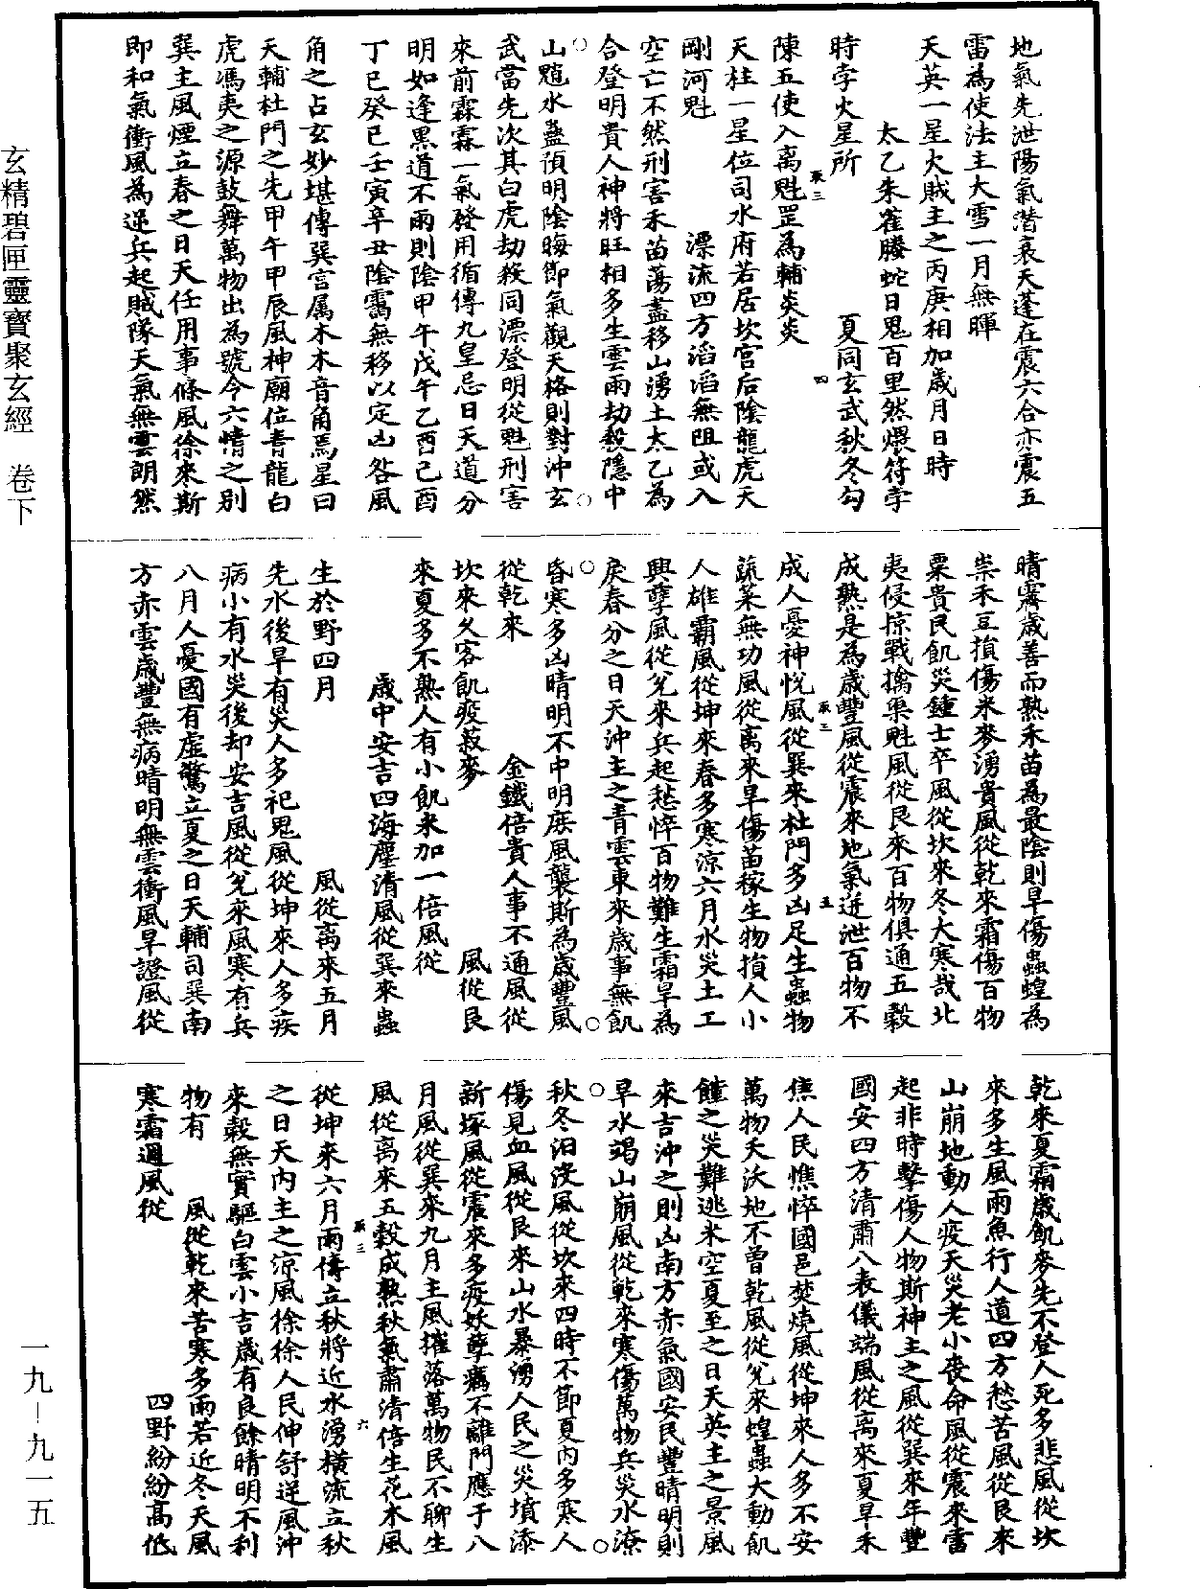 地氣先泄陽氣潛衰天蓬在震六合亦震五
雷為使法主大雪一月無暉
天英一星火賊主之丙庚相加歲月日時
太乙朱雀螣蛇日鬼百里然煨符孛
時孛火星所　夏同玄武秋冬勾
陳五使入離魁罡為輔炎炎
天柱一星位司水府若居坎宮后陰龍虎天
剛河魁　漂流四方滔滔無阻或入
空亡不然刑害禾苗蕩盡移山湧土太乙為
合登明貴人神將旺相多生雲雨劫殺隱中
山魈水蠱預明陰晦節氣觀天格則對沖玄
武當先次其白虎劫殺同漂登明從魁刑害
來前霖霖一氣發用循傳九皇忌日天道分
明如逢黑道不雨則陰甲午戊午乙酉己酉
丁巳癸巳壬寅辛丑陰靄無移以定凶咎風
角之占玄妙堪傳巽宮属木木音角焉星曰
天輔杜門之先甲午甲辰風神廟位青龍白
虎馮夷之源鼓舞萬物出為號令六情之別
巽主風煙立春之日天任用事條風徐來斯
即和氣衝風為逆兵起賊隊天氣無雲朗然
晴霽歲善而熟禾苗為最陰則旱傷蟲蝗為
祟禾豆損傷米麥湧貴風從乾來霜傷百物
粟貴民飢災鍾士卒風從坎來冬大寒哉北
夷侵掠戰擒渠魁風從艮來百物俱通五穀
成熟是為歲豐風從震來地氣迸泄百物不
成人憂神悅風從巽來杜門多凶足生蟲物
蔬菜無功風從离來旱傷苗稼生物損人小
人雄霸風從坤來春多寒涼六月水災土工
興孽風從兌來兵起愁悴百物難生霜旱為
戾春分之日天沖主之青雲東來歲事無飢
昏寒多凶晴明不中明庶風襲斯為歲豐風
從乾來　金鐵倍貴人事不通風從
坎來久客飢疫菽麥　風從艮
來夏多不熟人有小飢米加一倍風從
歲中安吉四海塵清風從巽來蟲
生於野四月　風從离來五月
先水後旱有災人多祀鬼風從坤來人多疾
病小有水災後却安吉風從兌來風寒有兵
八月人憂國有虛驚立夏之日天輔司巽南
方赤雲歲豐無病晴明無雲衝風旱證風從
乾來夏霜歲飢麥先不登人死多悲風從坎
來多生風雨魚行人道四方愁苦風從艮來
山崩地動人疫天災老小喪命風從震來雷
起非時擊傷人物斯神主之風從巽來年豐
國安四方清肅八表儀端風從离來夏旱禾
焦人民憔悴國邑焚燒風從坤來人多不安
萬物夭沃地不曾乾風從兌來蝗蟲大動飢
饉之災難逃米空夏至之日天英主之景風
來吉沖之則凶南方赤氣國安民豐晴明則
旱水竭山崩風從乾來寒傷萬物兵災水潦
秋冬汨沒風從坎來四時不節夏內多寒人
傷見血風從艮來山水暴湧人民之災墳添
新塚風從震來多疫妖孽癘不離門應于八
月風從巽來九月主風摧落萬物民不聊生
風從离來五穀成熟秋氣肅清倍生花木風
從坤來六月雨傷立秋將近水湧橫流立秋
之日天內主之涼風徐徐人民伸舒逆風沖
來穀無實驅白雲小吉歲有良餘晴明不利
物有　風從乾來苦寒多雨若近冬天風
寒霜迴風從　四野紛紛高低
玄精碧匣靈寶聚玄經　卷下
一九—九一五